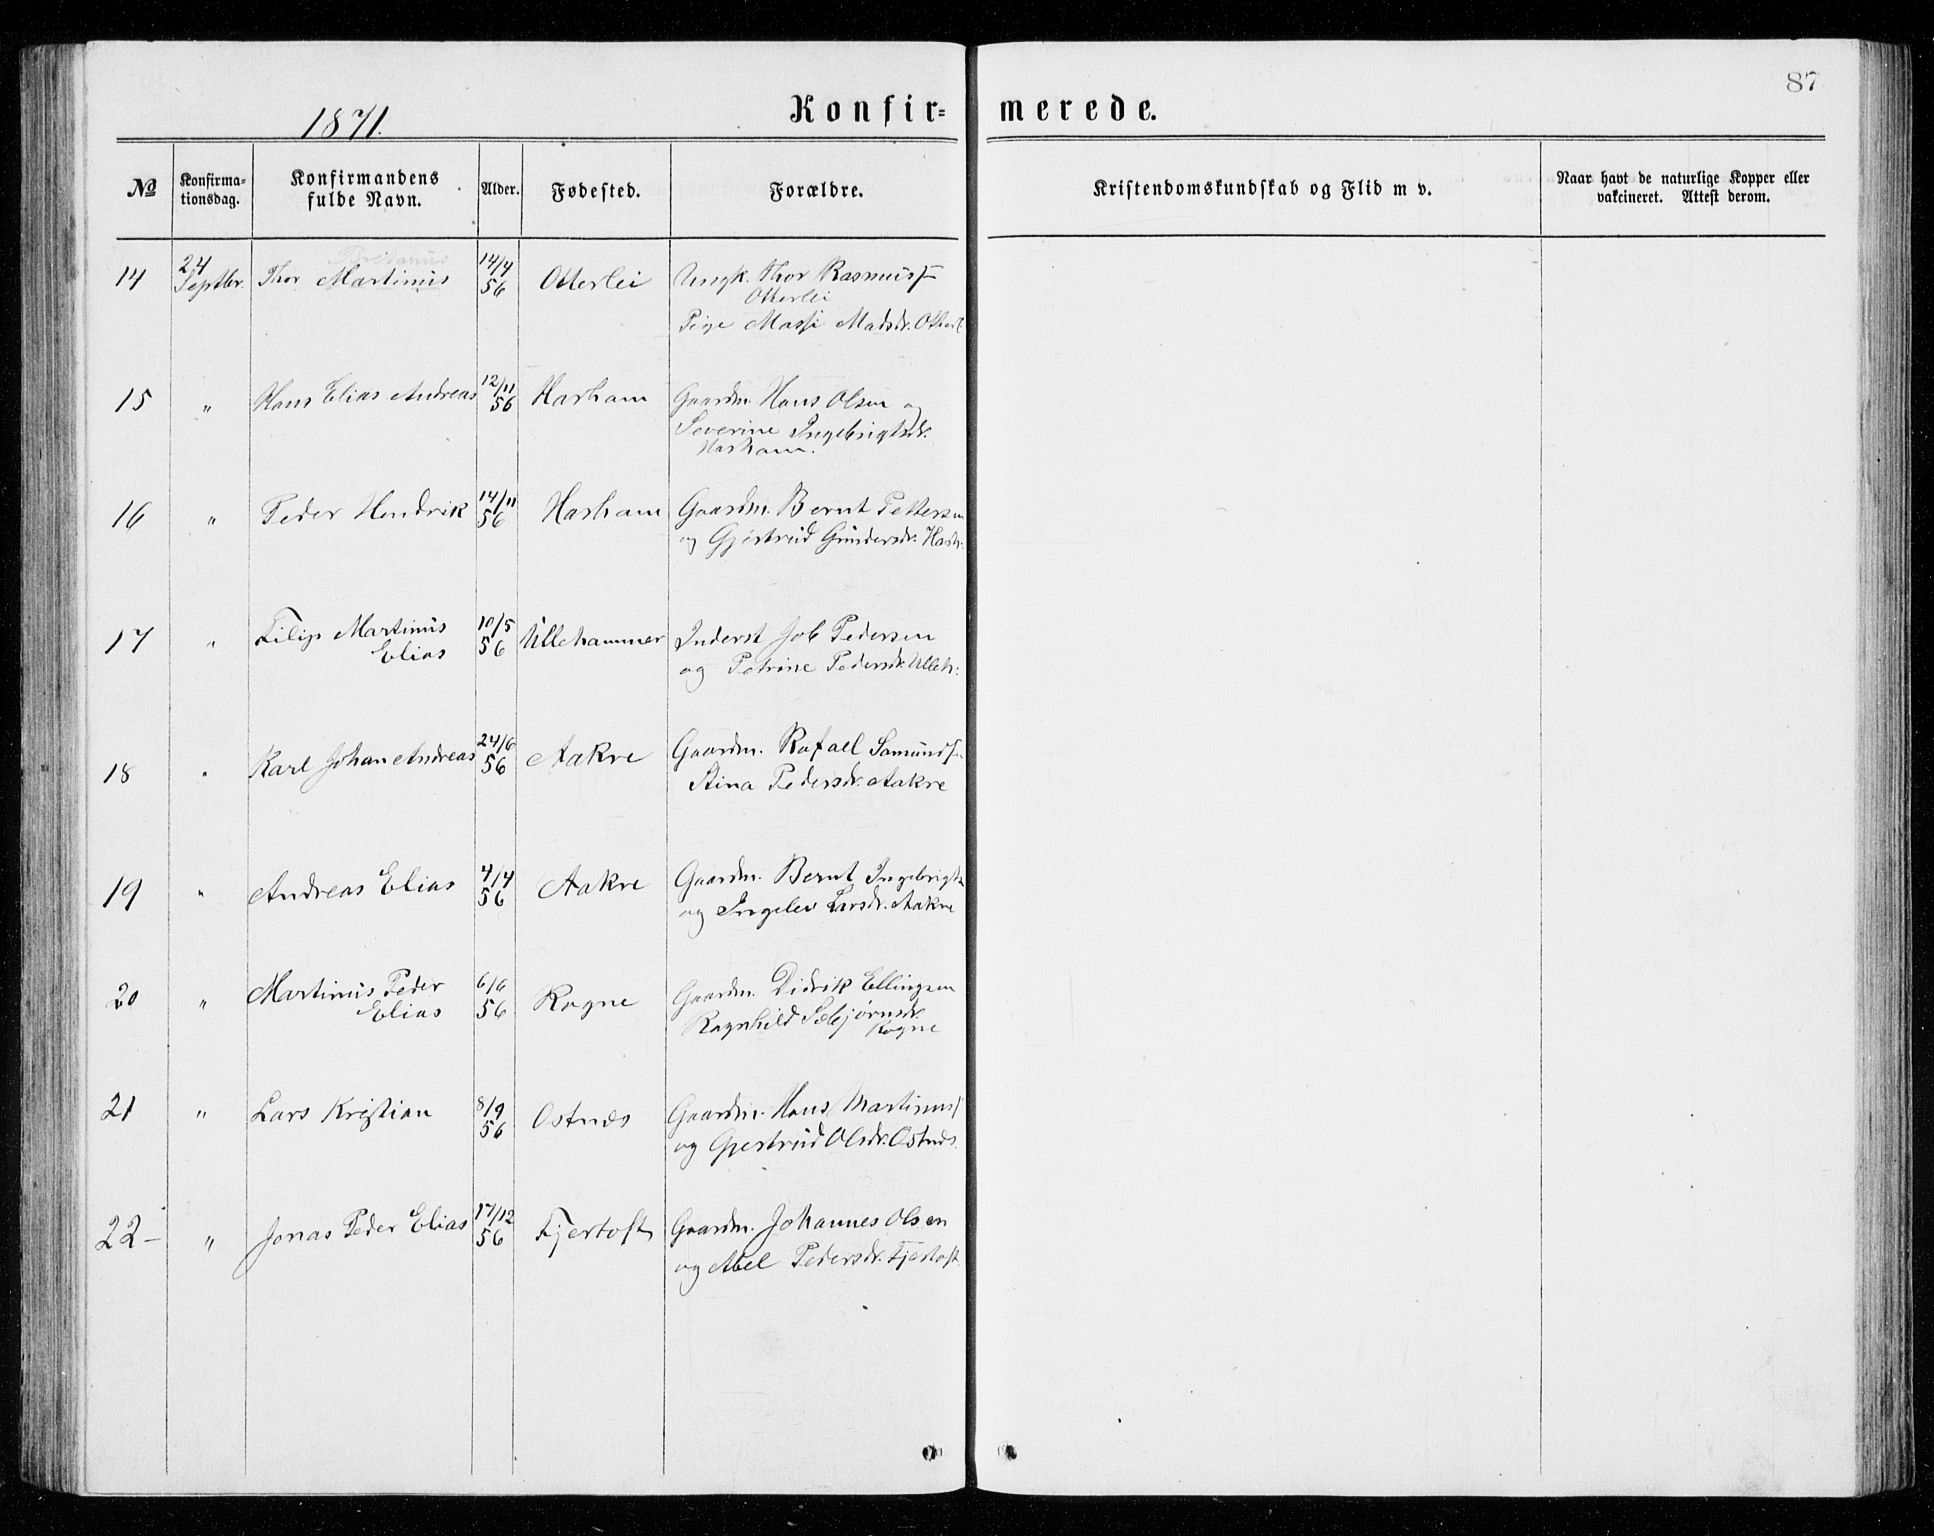 87
1871.
Konfir= merede.
No
Konfirma=
tionsdag.
Konfirmandens
fulde Navn.
Alder.
Fødested.
Forældre.
Kristendomskundskab og Flid m v.
Naar havt de naturlige Kopper eller
vakcineret. Attest derom.
14 24 Septbr. Thor Martinus 14/4 56 Otterlei Ungk. Thor Rasmuss
Otterlei
Pige Massi Madsdr. Otterl
15 " Hans Elias Andreas 12/11 56 Harham Gaardm. Hans Olsen og
Severine Ingebrigtsdr.
Harham.
16 " Peder Hendrik 14/11 56 Harham Gaardm. Bernt Pettersen
og Gjertrud Gundersdr. Harh.
17 " Filip Martinus 10/5 56 Ullehammer Inderst Job Pedersen
Elias og Petrine Pedersdr. Ulleh:
18 " Karl Johan Andreas 24/6 56 Aakre Gaardm. Rafael Samunds
Stina Pedersdr. Aakre
19 " Andreas Elias 4/4 56 Aakre Gaardm. Bernt Ingebrigts
og Ingelev Larsdr. Aakre
20 " Martinus Peder 6/6 56 Rogne Gaardm. Didrik Ellingsen
Elias Ragnhild Sebjørnsdr.
Rogne
21 " Lars Kristian 8/9 56 Ostnes Gaardm. Hans Martinus
og Gjertrud Olsdr. Ostnes.
22 – " Jonas Peder Elias 17/12 56 Fjertoft Gaardm. Johannes Olsen
og Abel Pedersdr. Fjertoft